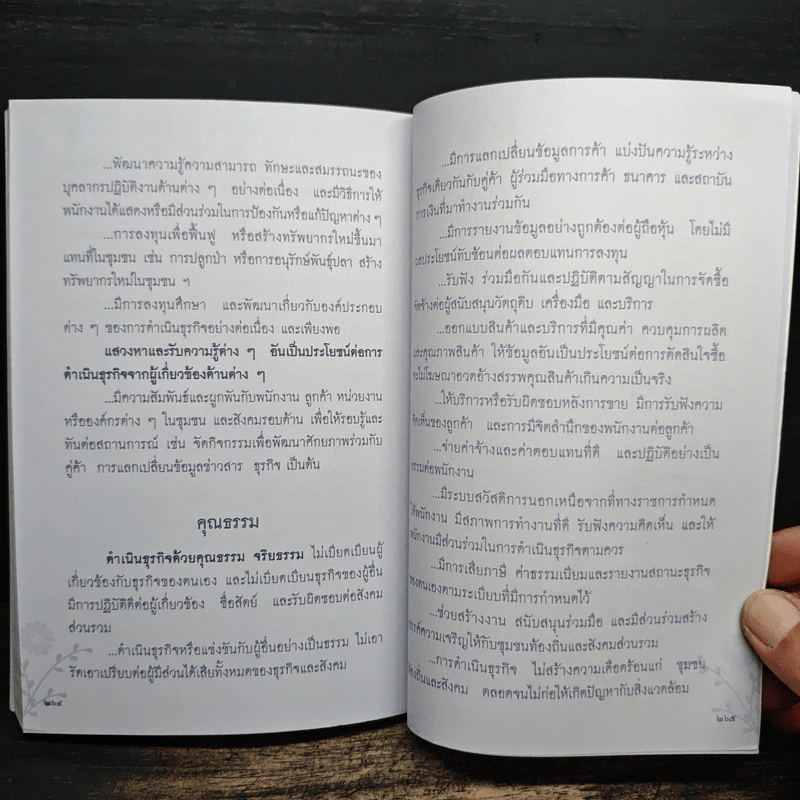 ...พัฒนาความรู้ความสามารถ ทักษะและสมรรถนะของ
บุคลากรปฏิบัติงานด้านต่าง ๆ อย่างต่อเนื่อง และมีวิธีการให้
พนักงานได้แสดงหรือมีส่วนร่วมในการป้องกันหรือแก้ปัญหาต่าง ๆ
...การลงทุนเพื่อฟื้นฟู หรือสร้างทรัพยากรใหม่ขึ้นมา
แทนที่ในชุมชน เช่น การปลูกป่า หรือการอนุรักษ์พันธุ์ปลา สร้าง
ทรัพยากรใหม่ในชุมชน ฯ
...มีการลงทุนศึกษา และพัฒนาเกี่ยวกับองค์ประกอบ
ต่าง ๆ ของการดำเนินธุรกิจอย่างต่อเนื่อง และเพียงพอ
แสวงหาและรับความรู้ต่าง ๆ อันเป็นประโยชน์ต่อการ
ดำเนินธุรกิจจากผู้เกี่ยวข้องด้านต่าง ๆ
...มีความสัมพันธ์และผูกพันกับพนักงาน ลูกค้า หน่วยงาน
หรือองค์กรต่าง ๆ ในชุมชน และสังคมรอบด้าน เพื่อให้รอบรู้และ
ทันต่อสถานการณ์ เช่น จัดกิจกรรมเพื่อพัฒนาศักยภาพร่วมกับ
คู่ค้า การแลกเปลี่ยนข้อมูลข่าวสาร ธุรกิจ เป็นต้น
คุณธรรม
ดำเนินธุรกิจด้วยคุณธรรม จริยธรรม ไม่เบียดเบียนผู้
เกี่ยวข้องกับธุรกิจของตนเอง และไม่เบียดเบียนธุรกิจของผู้อื่น
มีการปฏิบัติดีต่อผู้เกี่ยวข้อง ซื่อสัตย์ และรับผิดชอบต่อสังคม
ส่วนรวม
...ดำเนินธุรกิจหรือแข่งขันกับผู้อื่นอย่างเป็นธรรม ไม่เอา
รัดเอาเปรียบต่อผู้มีส่วนได้เสียทั้งหมดของธุรกิจและสังคม
๒๖๔
...มีการแลกเปลี่ยนข้อมูลการค้า แบ่งปันความรู้ระหว่าง
ธุรกิจเดียวกันกับคู่ค้า ผู้ร่วมมือทางการค้า ธนาคาร และสถาบัน
การเงินที่มาทำงานร่วมกัน
...มีการรายงานข้อมูลอย่างถูกต้องต่อผู้ถือหุ้น โดยไม่มี
ผลประโยชน์ทับซ้อนต่อผลตอบแทนการลงทุน
...รับฟัง ร่วมมือกันและปฏิบัติตามสัญญาในการจัดซื้อ
จัดจ้างต่อผู้สนับสนุนวัตถุดิบ เครื่องมือ และบริการ
...ออกแบบสินค้าและบริการที่มีคุณค่า ควบคุมการผลิต
และคุณภาพสินค้า ให้ข้อมูลอันเป็นประโยชน์ต่อการตัดสินใจซื้อ
จะไม่โฆษณาอวดอ้างสรรพคุณสินค้าเกินความเป็นจริง
...ให้บริการหรือรับผิดชอบหลังการขาย มีการรับฟังความ
คิดเห็นของลูกค้า และการมีจิตสำนึกของพนักงานต่อลูกค้า
...จ่ายค่าจ้างและค่าตอบแทนที่ดี และปฏิบัติอย่างเป็น
ธรรมต่อพนักงาน
...มีระบบสวัสดิการนอกเหนือจากที่ทางราชการกำหนด
ให้พนักงาน มีสภาพการทำงานที่ดี รับฟังความคิดเห็น และให้
พนักงานมีส่วนร่วมในการดำเนินธุรกิจตามควร
...มีการเสียภาษี ค่าธรรมเนียมและรายงานสถานะธุรกิจ
ของตนเองตามระเบียบที่มีการกำหนดไว้
...ช่วยสร้างงาน สนับสนุนร่วมมือ และมีส่วนร่วมสร้าง
สรรค์ความเจริญให้กับชุมชนท้องถิ่นและสังคมส่วนรวม
...การดำเนินธุรกิจ ไม่สร้างความเดือดร้อนแก่ ชุมชน
ท้องถิ่นและสังคม ตลอดจนไม่ก่อให้เกิดปัญหากับสิ่งแวดล้อม
๒๖๕